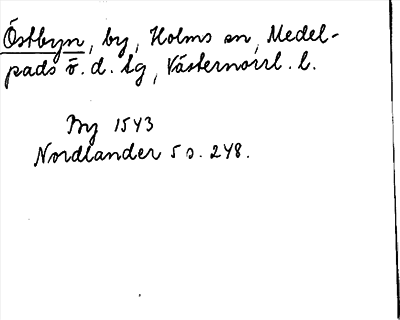 Östbyn, by, Holms sn, Medel-
pads v. d. tg, Västernorrl. l.
By 1543
Nordlander 5 s. 248.